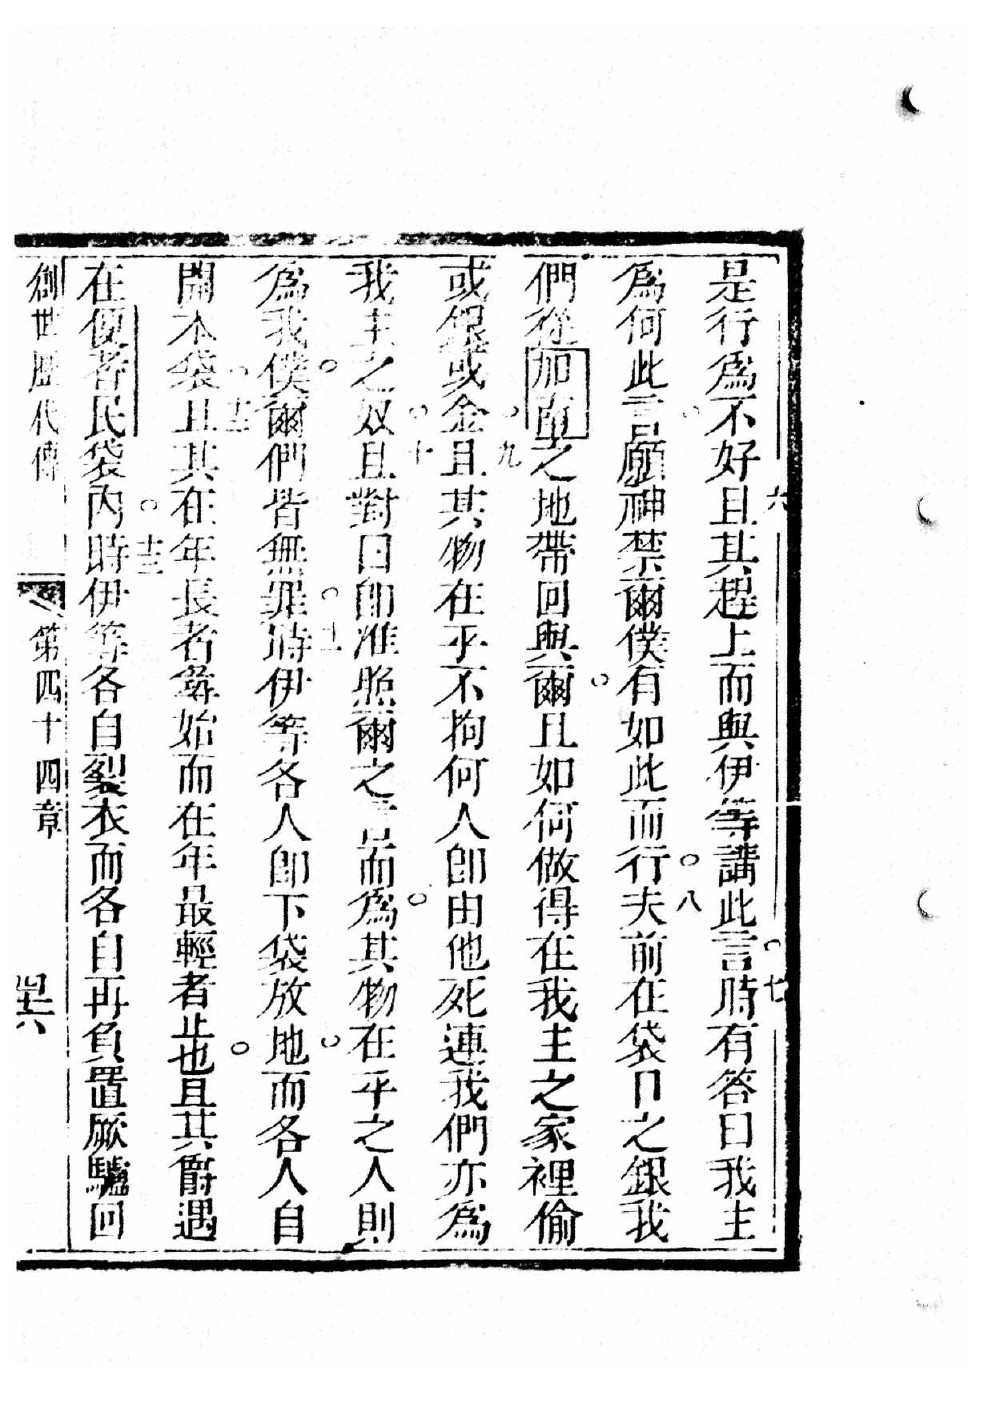 是行爲不好且其趕上而與伊等講此言時有答曰我主
六 七
爲何此言願神禁爾僕有如此而行夫前在袋口之銀我
八
們從加南之地帶回與爾且如何做得在我主之家裡偷
九
或銀或金且其物在乎不拘何人卽由他死連我們亦爲
十
我主之奴且對曰卽准照爾之言而爲其物在乎之人則
十一
爲我僕爾們皆無罪時伊等各人卽下袋放地而各人自
十二
開本袋且其在年長者尋始而在年最輕者止也且其爵遇
十三
在便者民袋內時伊等各自裂衣而各自再負置厥驢回
創世歷代傳 第四十四章